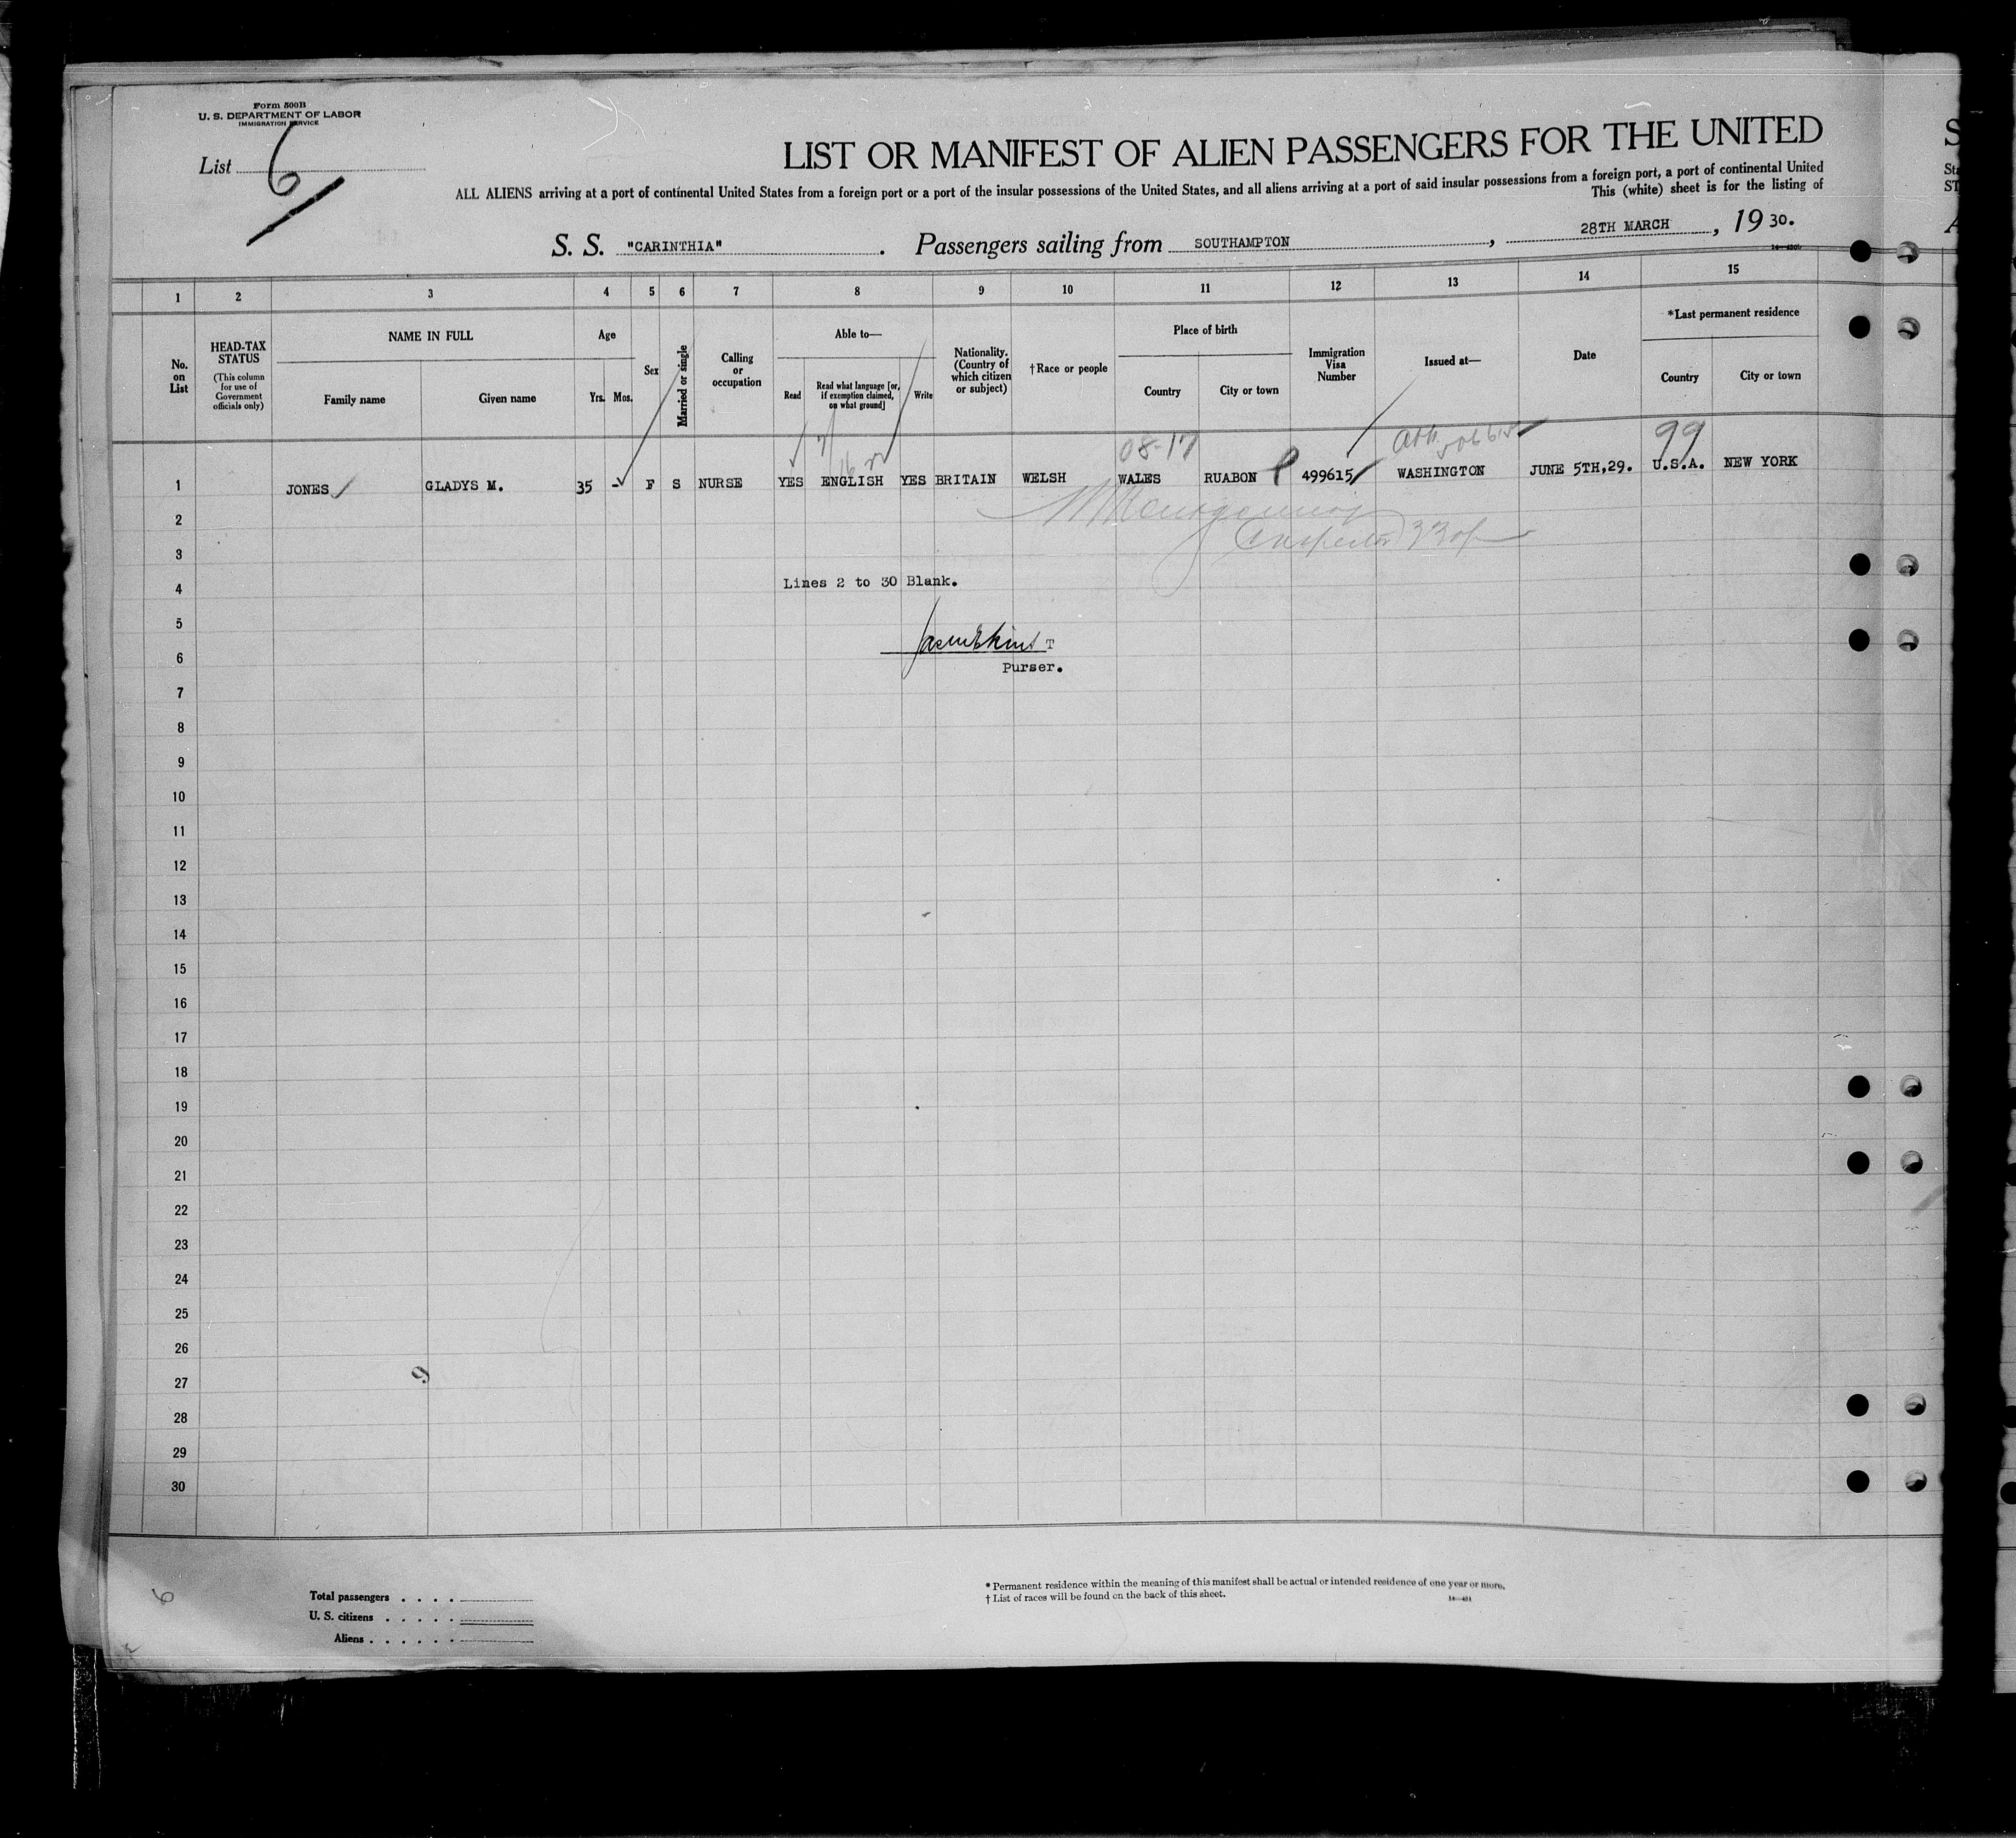 Form 500B
U. S. DEPARTMENT OF LABOR
IMMIGRATION SERVICE
List 6
LIST OR MANIFEST OF ALIEN PASSENGERS FOR THE UNITED
ALL ALIENS arriving at a port of continental United States from a foreign port or a port of the insular possessions of the United States, and all aliens arriving at a port of said insular possessions from a foreign port, a port of continental United
This (white) sheet is for the listing of
S. S. "CARINTHIA" . Passengers sailing from SOUTHAMPTON , 28TH MARCH , 19 30.
1 2 3 4 5 6 7 8 9 10 11 12 13 14 15
No. on List
HEAD-TAX STATUS (This column for use of Government officials only)
NAME IN FULL
Family name
Given name
Age
Yrs. Mos.
Sex
Married or single
Calling or occupation
Able to—
Read
Read what language [or, if exemption claimed, on what ground]
Write
Nationality. (Country of which citizen or subject)
†Race or people
Place of birth
Country
City or town
Immigration Visa Number
Issued at—
Date
*Last permanent residence
Country
City or town
08-17 99
1 JONES GLADYS M. 35 - F S NURSE YES ENGLISH YES BRITAIN WELSH WALES RUABON 499615 WASHINGTON JUNE 5TH,29. U.S.A. NEW YORK
2
Inspector
3
Lines 2 to 30 Blank.
4
5
6
Purser.
7
8
9
10
11
12
13
14
15
16
17
18
19
20
21
22
23
24
25
26
27
28
29
30
6
Total passengers . . . .
U. S. citizens . . . . .
Aliens . . . . . .
* Permanent residence within the meaning of this manifest shall be actual or intended residence of one year or more.
† List of races will be found on the back of this sheet.